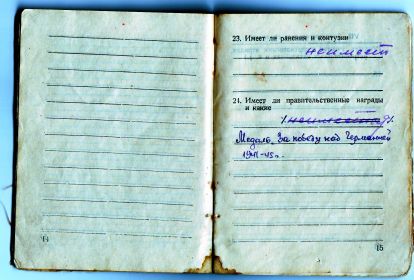 14
23. Имеет ли ранения и контузии
не имеет
24. Имеет ли правительственные награды
и какие
не имеет
Медаль „За победу над Германией
1941-45 г.
15